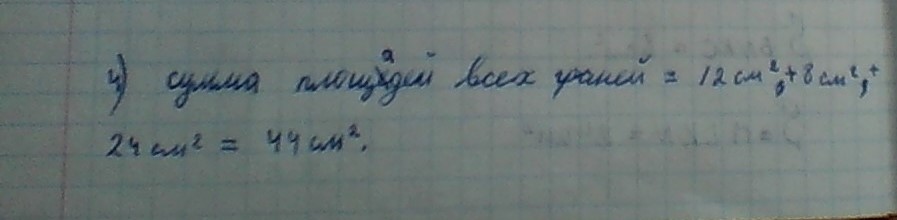 4) сумма площадей всех граней = 12 см², + 8 см², +
24 см² = 44 см².